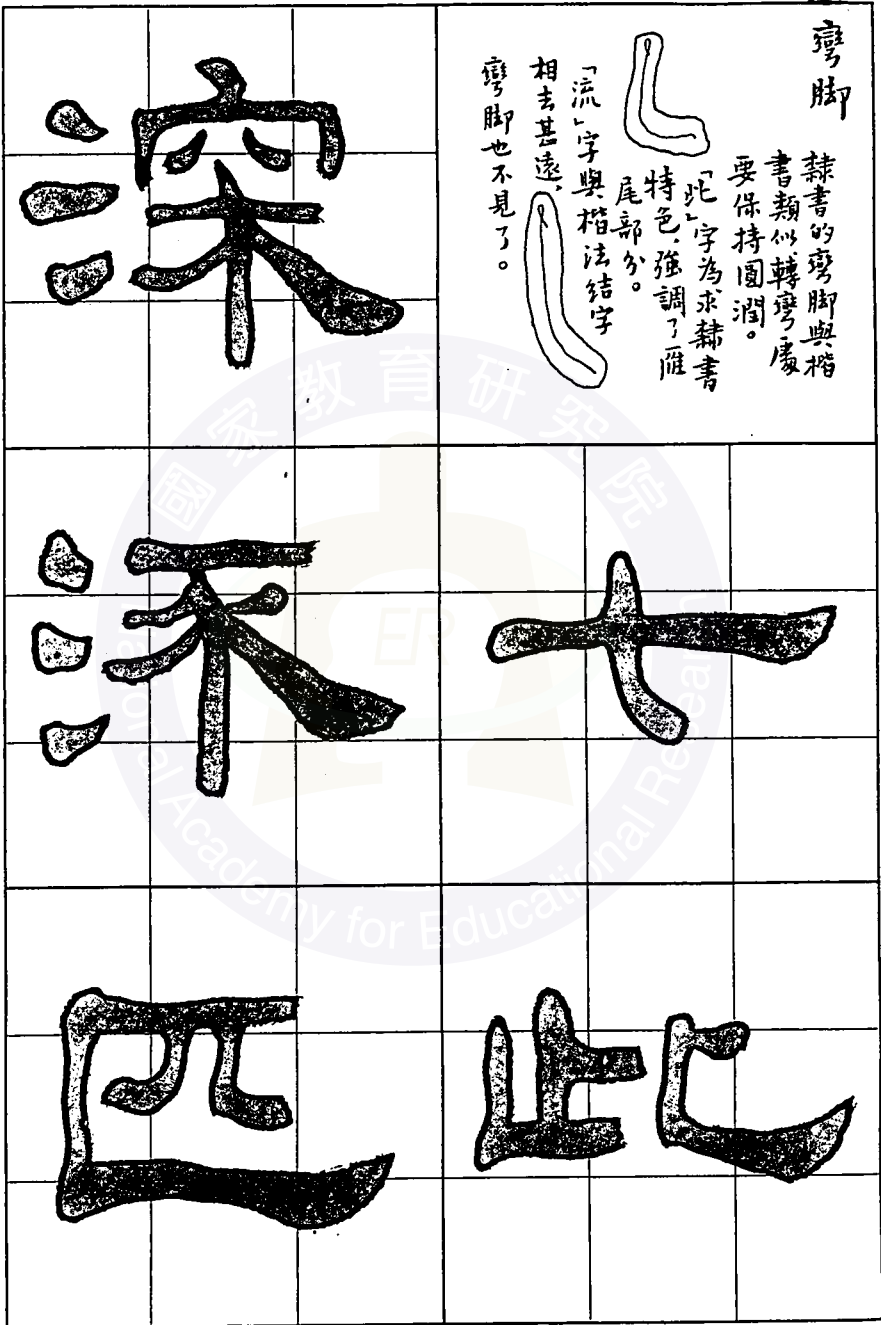 彎脚
隸書的彎脚與楷
書類似轉彎處
要保持圓潤。
「此」字為求隸書
特色，強調了雁
尾部分。
「流」字與楷法結字
相去甚遠，
彎脚也不見了。
七
此
深
匹
國家教育研究院
National Academy for Educational Research